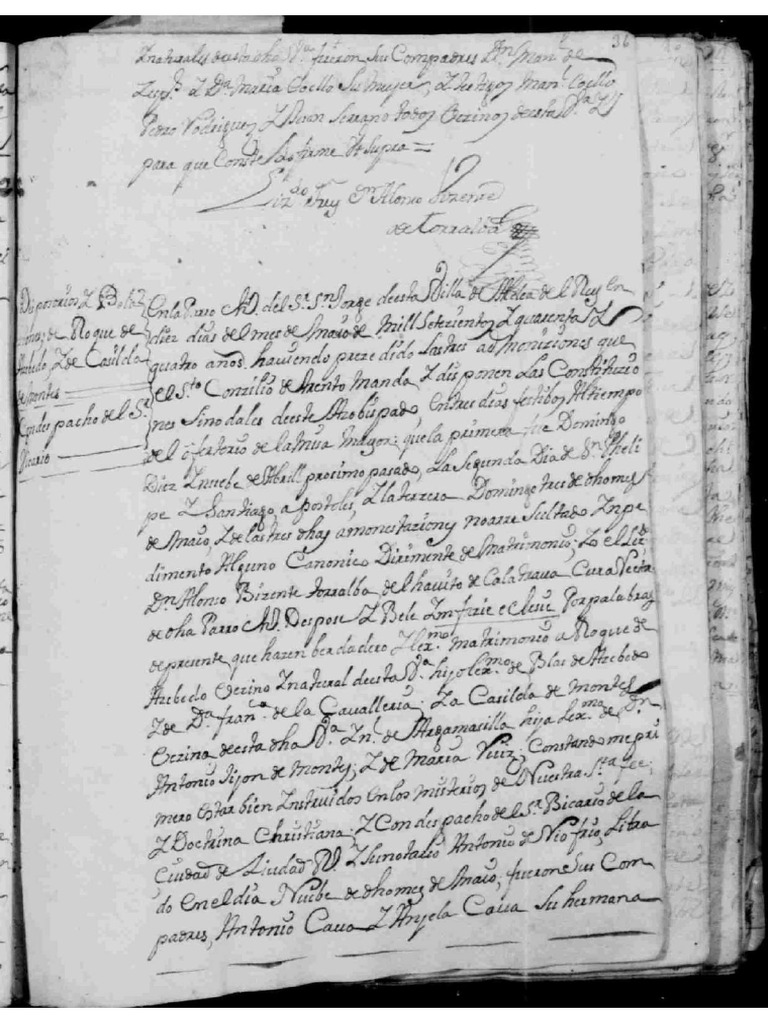 36
Znaturales desta dha Va. fueron sus Compadres Dn. Manl. de
Z Da. Maria Coello Su Muger, Z testigos Manl. Coello
Pedro Rodriguez Z Juan Serrano todos Vezinos desta Va. Z
para que Conste lo firme Ut Supra =
Lizdo. Frey Dn. Alonso Bizente
de Torralba
Desposorios Z Bela
ziones de Roque de
Azebedo, Z de Casilda
de Montes
Con despacho del Sr.
Vicario
En la Parro Al. del Sr. Sn. Jorge desta Villa de Aldea de el Rey en
diez dias del mes de Maio de mill Setezientos Z quarenta Z
quatro años. haviendo prezedido las tres amoniziones que
el Sto. Conzilio de trento manda, Z disponen las Constituzio
nes Sinodales deste Arzobispado, en tres dias festibos Al tiempo
del ofertorio de la misa mayor: que la primera fue Domingo
Diez Z nuebe de Abrill proximo pasado, La Segunda Dia de Sn. Pheli
pe Z Santiago, apostoles, Z la terzera Domingo tres de dho mes
de Maio, Z de las tres dhas amonestaziones no a rresultado Znpe
dimento Alguno Canonico Dirimente de Matrimonio; Zo el lizdo.
Dn. Alonso Bizente torralba, del havito de Calatrava Cura Rector
de dha Parro Al. Despose Z Bele Znfazie eclesie Por palabras
de presente que hazen berdadero Z lexmo. matrimonio a Roque de
Azebedo Vezino Z natural desta Va. hijo lexmo. de Blas de Azebedo
Z de Da. Frana. de la Cavalleria; Z a Casilda de Montes
Vezina desta dha Va. Z nl. de Argamasilla hija lexma. de Dn.
Antonio Jijon de Montes; Z de Maria Ruiz; Constandome pri
mero estar bien Znstruidos en los misterios de Nuestra Sta. fee;
Z Doctrina Christiana; Z Con despacho de el Sr. Bicario de la
Ciudad de Ziudad Rl. Z Su notario Antonio de Rio frio, libra
do en el dia Nuebe de dho mes de Maio; fueron Sus Com
padres, Antonio Cava Z Anjela Cava Su hermana